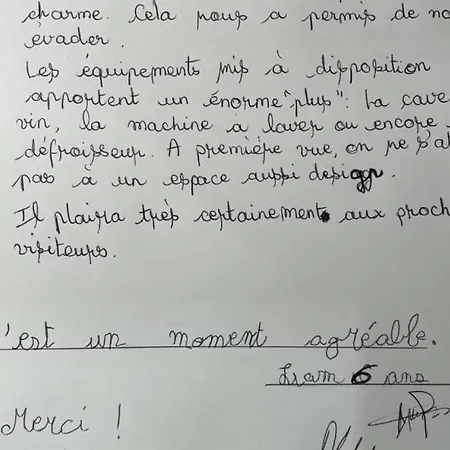 charme. Cela nous a permis de no
évader.
Les équipements mis à disposition
apportent un énorme "plus" : La cave
vin, la machine à laver ou encore
défroisseur. A première vue, on ne s'at
pas à un espace aussi design.
Il plaira très certainement aux proch
visiteurs.
'est un moment agréable.
Liam 6 ans
Merci !